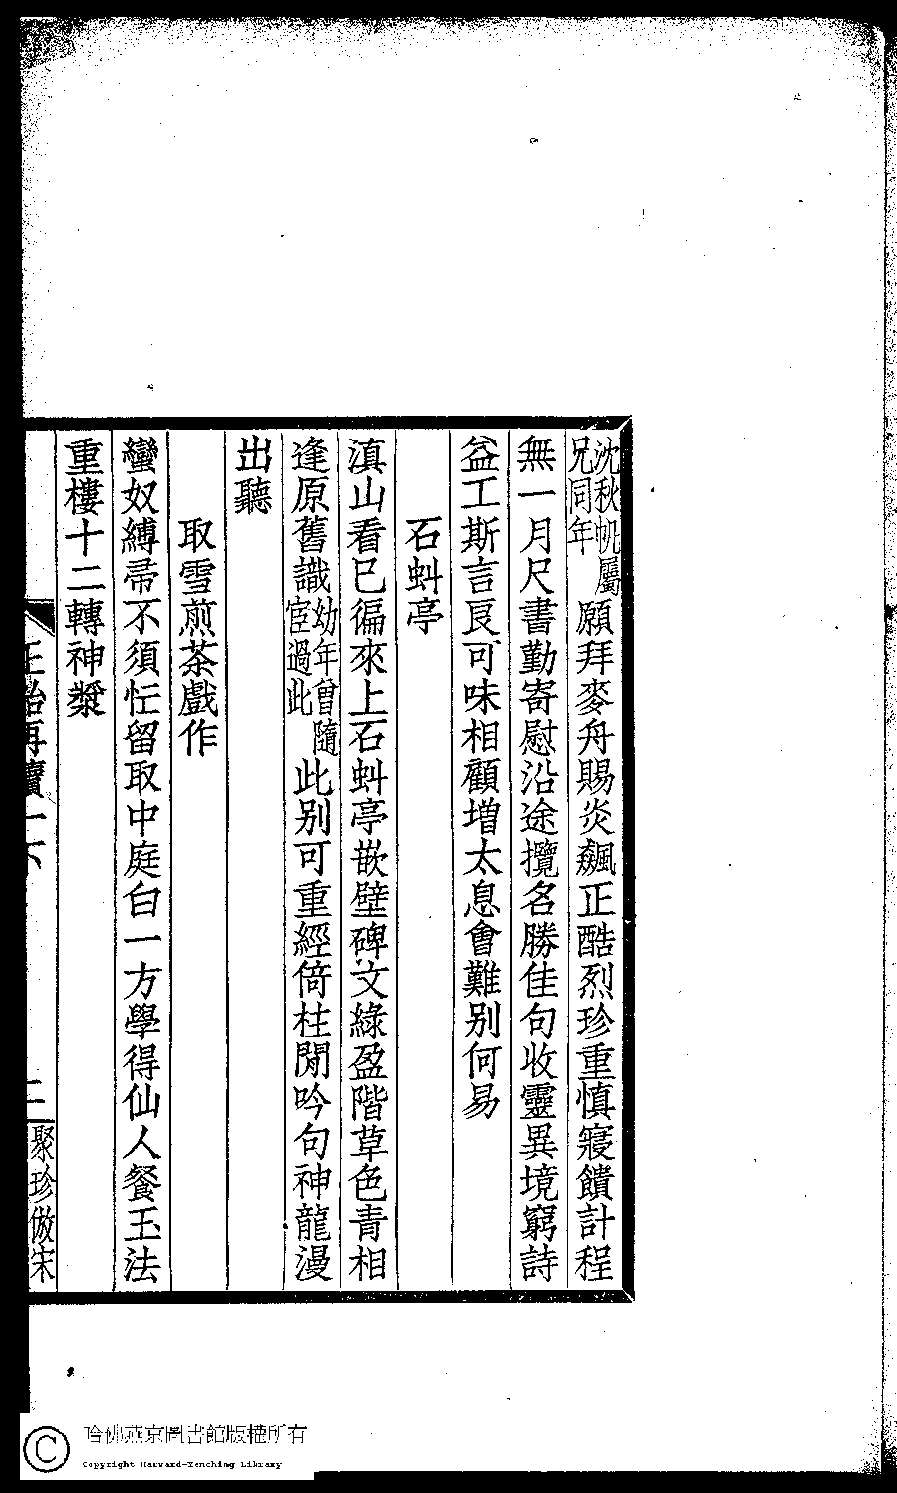 沈秋帆屬
兄同年
願拜麥舟賜炎飆正酷烈珍重慎寢饋計程
無一月尺書勤寄慰沿途攬名勝佳句收靈異境窮詩
益工斯言良可味相顧增太息會難別何易
石蚪亭
滇山看巳徧來上石蚪亭嵌壁碑文綠盈階草色青相
逢原舊識
幼年曾隨
宦過此
此別可重經倚柱閒吟句神龍漫
出聽
取雪煎茶戲作
蠻奴縛帚不須忙留取中庭白一方學得仙人餐玉法
重樓十二轉神漿
再續
二
聚珍倣宋
哈佛燕京圖書館版權所有
Copyright Harvard-Yenching Library